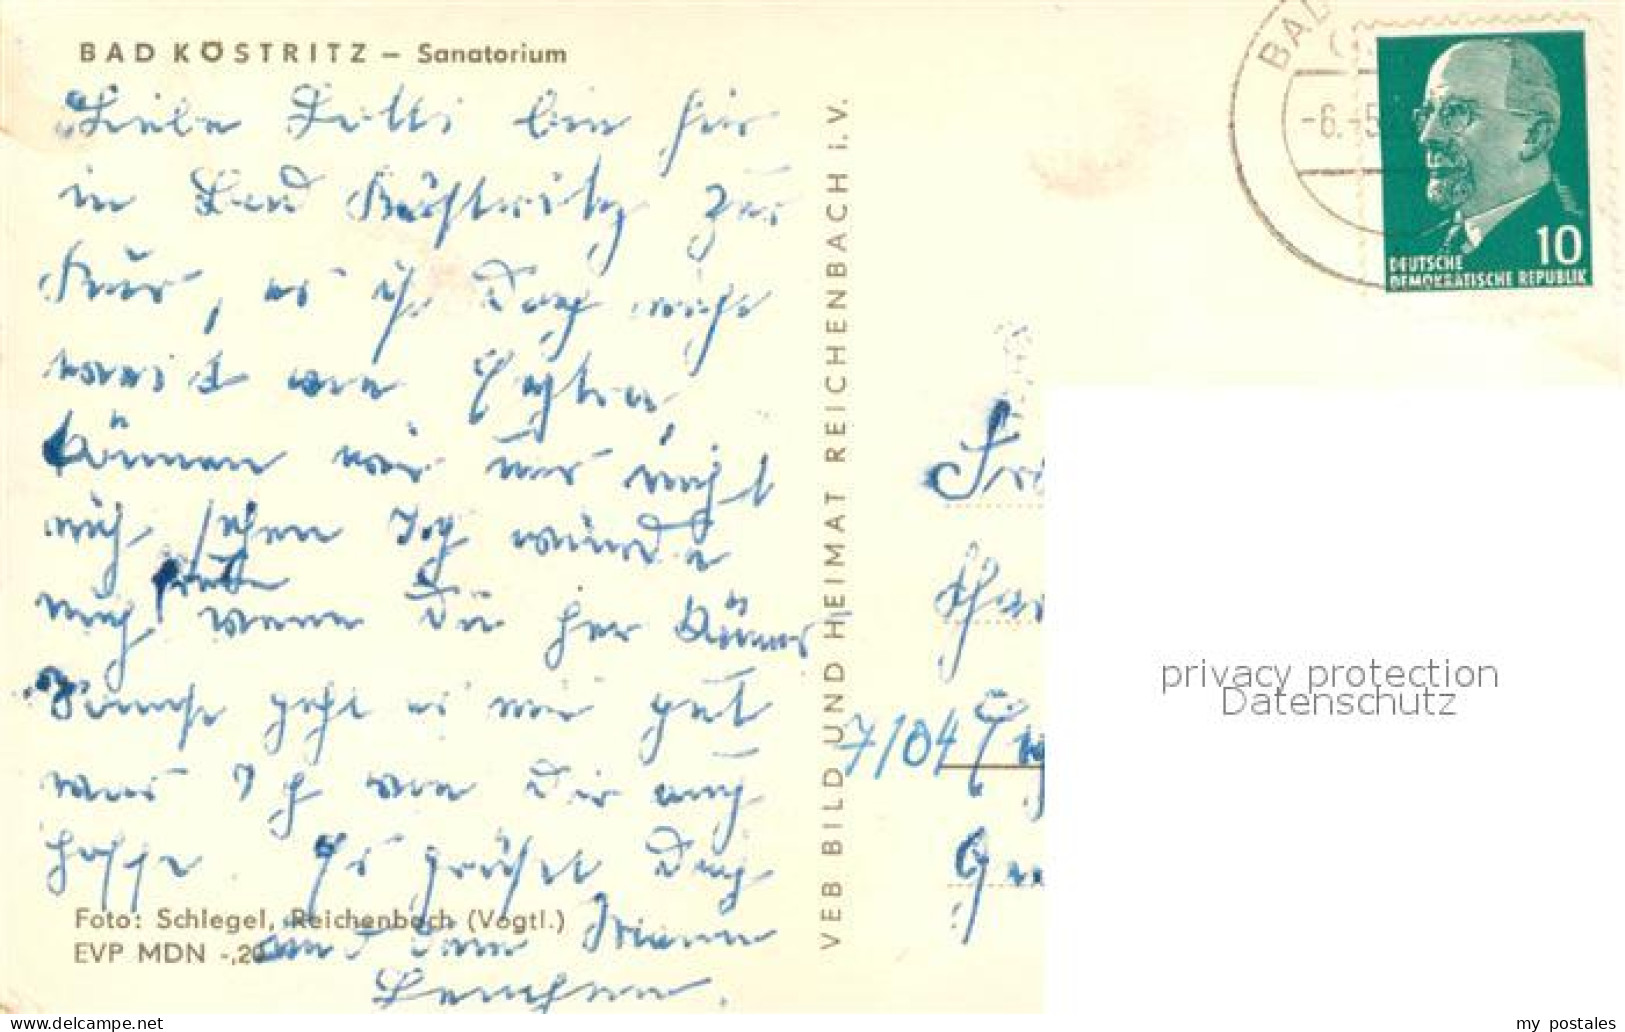 BAD KÖSTRITZ – Sanatorium
Liebe Lotti bin hir
in Bad Köstritz zur
Kur, es ist doch nicht
weit von
können wir uns nicht
mich sehen Ich würde
mich freuen wenn Du her käms
Sonst geht es mir gut
was ich von Dir auch
hoffe. Es grüßet Dich
und dein Mann
Foto: Schlegel, Reichenbach (Vogtl.)
EVP MDN -,20
VEB BILD UND HEIMAT REICHENBACH i. V.
BAD
-6.-5
10
DEUTSCHE
DEMOKRATISCHE REPUBLIK
7104
privacy protection
Datenschutz
www.delcampe.net/de
my_postales